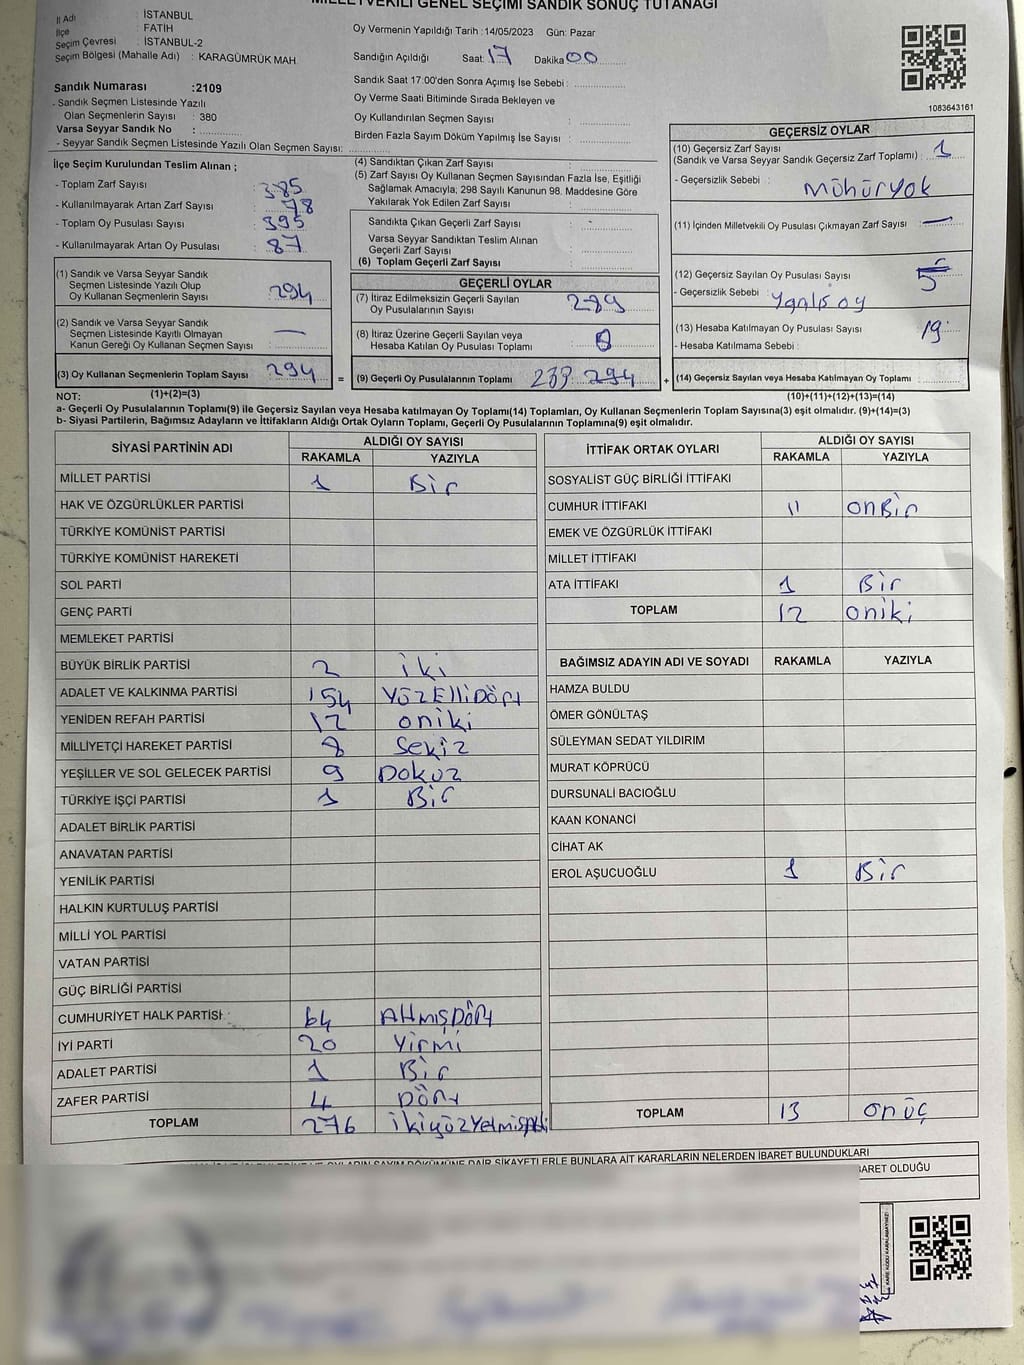 MİLLETVEKİLİ GENEL SEÇİMİ SANDIK SONUÇ TUTANAĞI
İl Adı : İSTANBUL
İlçe : FATİH
Seçim Çevresi : İSTANBUL-2
Seçim Bölgesi (Mahalle Adı) : KARAGÜMRÜK MAH.
Oy Vermenin Yapıldığı Tarih :14/05/2023 Gün: Pazar
Sandığın Açıldığı Saat: 17 Dakika 00
Sandık Saat 17:00'den Sonra Açımış İse Sebebi :
Oy Verme Saati Bitiminde Sırada Bekleyen ve
Oy Kullandırılan Seçmen Sayısı :
Birden Fazla Sayım Döküm Yapılmış İse Sayısı :
1083643161
Sandık Numarası :2109
- Sandık Seçmen Listesinde Yazılı
Olan Seçmenlerin Sayısı : 380
Varsa Seyyar Sandık No :
- Seyyar Sandık Seçmen Listesinde Yazılı Olan Seçmen Sayısı:
İlçe Seçim Kurulundan Teslim Alınan ;
- Toplam Zarf Sayısı : 385
- Kullanılmayarak Artan Zarf Sayısı : 78
- Toplam Oy Pusulası Sayısı : 395
- Kullanılmayarak Artan Oy Pusulası : 87
(1) Sandık ve Varsa Seyyar Sandık
Seçmen Listesinde Yazılı Olup
Oy Kullanan Seçmenlerin Sayısı : 294
(2) Sandık ve Varsa Seyyar Sandık
Seçmen Listesinde Kayıtlı Olmayan
Kanun Gereği Oy Kullanan Seçmen Sayısı : —
(3) Oy Kullanan Seçmenlerin Toplam Sayısı 294 =
(4) Sandıktan Çıkan Zarf Sayısı :
(5) Zarf Sayısı Oy Kullanan Seçmen Sayısından Fazla İse, Eşitliği
Sağlamak Amacıyla; 298 Sayılı Kanunun 98. Maddesine Göre
Yakılarak Yok Edilen Zarf Sayısı :
Sandıkta Çıkan Geçerli Zarf Sayısı : -
Varsa Seyyar Sandıktan Teslim Alınan
Geçerli Zarf Sayısı :
(6) Toplam Geçerli Zarf Sayısı :
GEÇERLİ OYLAR
(7) İtiraz Edilmeksizin Geçerli Sayılan
Oy Pusulalarının Sayısı : 289
(8) İtiraz Üzerine Geçerli Sayılan veya
Hesaba Katılan Oy Pusulası Toplamı :
(9) Geçerli Oy Pusulalarının Toplamı 294 +
GEÇERSİZ OYLAR
(10) Geçersiz Zarf Sayısı
(Sandık ve Varsa Seyyar Sandık Geçersiz Zarf Toplamı) : 1
- Geçersizlik Sebebi : Mühüryok
(11) İçinden Milletvekili Oy Pusulası Çıkmayan Zarf Sayısı : —
(12) Geçersiz Sayılan Oy Pusulası Sayısı : 5
- Geçersizlik Sebebi : Yanlış oy
(13) Hesaba Katılmayan Oy Pusulası Sayısı : 19
- Hesaba Katılmama Sebebi :
(14) Geçersiz Sayılan veya Hesaba Katılmayan Oy Toplamı
NOT: (1)+(2)=(3) (10)+(11)+(12)+(13)=(14)
a- Geçerli Oy Pusulalarının Toplamı(9) ile Geçersiz Sayılan veya Hesaba katılmayan Oy Toplamı(14) Toplamları, Oy Kullanan Seçmenlerin Toplam Sayısına(3) eşit olmalıdır. (9)+(14)=(3)
b- Siyasi Partilerin, Bağımsız Adayların ve İttifakların Aldığı Ortak Oyların Toplamı, Geçerli Oy Pusulalarının Toplamına(9) eşit olmalıdır.
SİYASİ PARTİNİN ADI ALDIĞI OY SAYISI
RAKAMLA YAZIYLA
MİLLET PARTİSİ 1 Bir
HAK VE ÖZGÜRLÜKLER PARTİSİ
TÜRKİYE KOMÜNİST PARTİSİ
TÜRKİYE KOMÜNİST HAREKETİ
SOL PARTİ
GENÇ PARTİ
MEMLEKET PARTİSİ
BÜYÜK BİRLİK PARTİSİ 2 iki
ADALET VE KALKINMA PARTİSİ 154 YÜZEllİDÖrt
YENİDEN REFAH PARTİSİ 12 oniki
MİLLİYETÇİ HAREKET PARTİSİ 8 Sekiz
YEŞİLLER VE SOL GELECEK PARTİSİ 9 Dokuz
TÜRKİYE İŞÇİ PARTİSİ 1 Bir
ADALET BİRLİK PARTİSİ
ANAVATAN PARTİSİ
YENİLİK PARTİSİ
HALKIN KURTULUŞ PARTİSİ
MİLLİ YOL PARTİSİ
VATAN PARTİSİ
GÜÇ BİRLİĞİ PARTİSİ
CUMHURİYET HALK PARTİSİ 64 AltmışDört
İYİ PARTİ 20 Yirmi
ADALET PARTİSİ 1 Bir
ZAFER PARTİSİ 4 Dört
TOPLAM 276
İTTİFAK ORTAK OYLARI ALDIĞI OY SAYISI
RAKAMLA YAZIYLA
SOSYALİST GÜÇ BİRLİĞİ İTTİFAKI
CUMHUR İTTİFAKI 11 onBir
EMEK VE ÖZGÜRLÜK İTTİFAKI
MİLLET İTTİFAKI
ATA İTTİFAKI 1 Bir
TOPLAM 12 oniki
BAĞIMSIZ ADAYIN ADI VE SOYADI RAKAMLA YAZIYLA
HAMZA BULDU
ÖMER GÖNÜLTAŞ
SÜLEYMAN SEDAT YILDIRIM
MURAT KÖPRÜCÜ
DURSUNALİ BACIOĞLU
KAAN KONANCİ
CİHAT AK
EROL AŞUCUOĞLU 1 Bir
TOPLAM 13 onüç
DAİR ŞİKAYETLERLE BUNLARA AİT KARARLARIN NELERDEN İBARET BULUNDUKLARI
BARET OLDUĞU